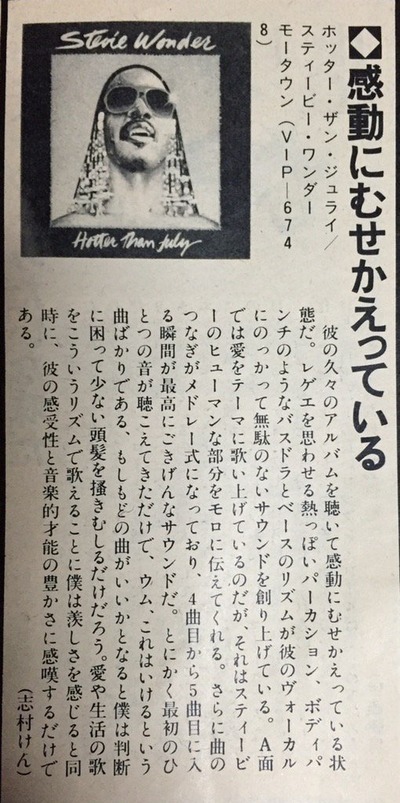 ◆感動にむせかえっている
ホッター・ザン・ジュライ／
スティービー・ワンダー
モータウン（ＶＩＰ—６７４
８）
Stevie Wonder
Hotter Than July
彼の久々のアルバムを聴いて感動にむせかえっている状
態だ。レゲエを思わせる熱っぽいパーカション、ボディパ
ンチのようなバスドラとベースのリズムが彼のヴォーカル
にのっかって無駄のないサウンドを創り上げている。Ａ面
では愛をテーマに歌い上げているのだが、それはスティービ
ーのヒューマンな部分をモロに伝えてくれる。さらに曲の
つなぎがメドレー式になっており、４曲目から５曲目に入
る瞬間が最高にごきげんなサウンドだ。とにかく最初のひ
とつの音が聴こえてきただけで、ウム、これはいけるという
曲ばかりである、もしもどの曲がいいかとなると僕は判断
に困って少ない頭髪を掻きむしるだけだろう。愛や生活の歌
をこういうリズムで歌えることに僕は羨しさを感じると同
時に、彼の感受性と音楽的才能の豊かさに感嘆するだけで
ある。
（志村けん）